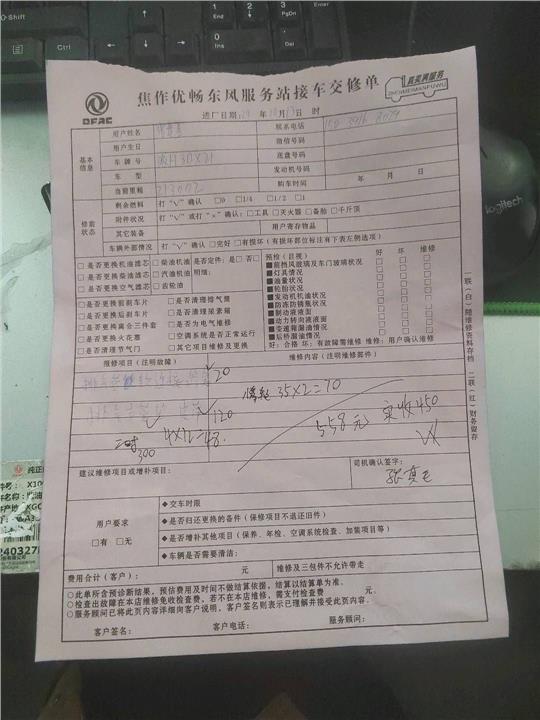 焦作优畅东风服务站接车交修单
DFAC
真实满服务
进厂日期: 年 月 日 时
基本信息
用户姓名
联系电话
用户生日
微信号码
车牌号
底盘号码
车 型
发动机号码
当前里程 213002
购车时间 年 月 日
修前状态
剩余燃料 打“V”确认 □0 □1/4 □1/2 □1
附件状况 打“V”或打“×”确认:□工具 □灭火器 □备胎 □千斤顶
其它装备
用户寄存物品
车辆外部情况 打“V”确认 □完好 □有损坏(有损坏部位标注有下表左侧选项)
□是否更换机油滤芯 □柴油机油 是否定件: □是 □否
□是否更换柴油滤芯 □汽油机油 明细:
□是否更换空气滤芯 □齿轮油
□是否更换前刹车片 □是否清理排气筒
□是否更换后刹车片 □是否清理尿素箱
□是否更换离合三件套 □是否为电气维修
□是否更换火花塞 □空调系统是否正常运行
□是否清理节气门 □其它项目维修及更换
预检(目视) 好 坏 维修
■前挡风玻璃及车门玻璃状况
■灯具情况
■油量状况
■轮胎状况
■发动机机油状况
■防冻防锈氟状况
■制动液液面
■动力转向液液面
■变速箱漏油情况
■后桥漏油情况
好:合格 坏:有故障需维修 维修:用户确认维修
维修项目(注明故障)
维修内容(注明维修部件)
20
35×2=70
120
4×12=48
300
558元 实收450
建议维修项目或增补项目:
司机确认签字:
用户要求
□有 □无
◆交车时限
◆是否归还更换的备件(保修项目不退还旧件)
◆是否增补其他项目(保养、年检、空调系统检查、加装项目等)
◆车辆是否需要清洁:
费用合计(客户): 元
维修及三包件不允许带走
○此单所含预诊断结果,预估费用及时间不做结算依据,结算以结算单为准。
○检查出故障在本店维修免收检查费,若不在本店维修,需支付检查费 元。
○服务顾问已将此页内容详细向客户说明,客户签名则表示已理解并接受此页内容。
客户签名: 客户电话: 服务顾问:
一联(白)随维修资料存档 二联(红)财务留存
Shift
Ctrl
logitech
纯正
240327